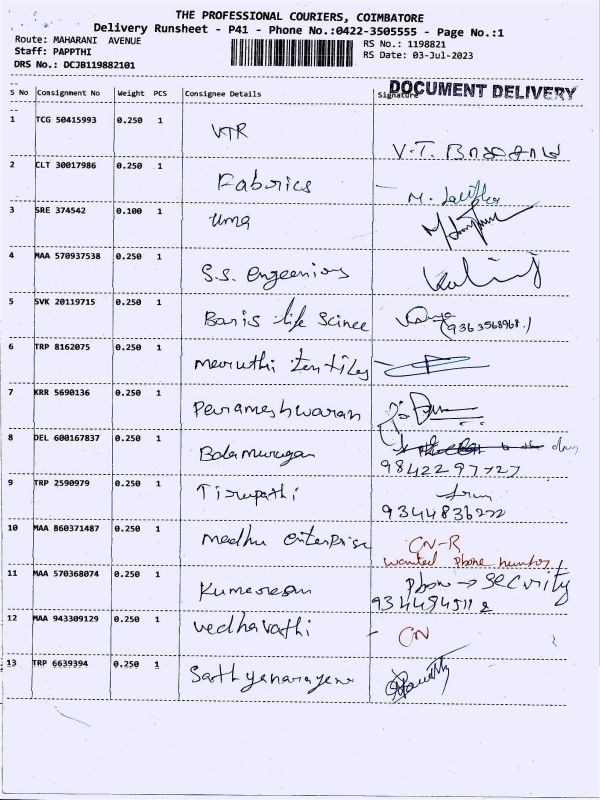 THE PROFESSIONAL COURIERS, COIMBATORE
Delivery Runsheet - P41 - Phone No.:0422-3505555 - Page No.:1
Route: MAHARANI AVENUE
Staff: PAPPTHI
DRS No.: DCJB119882101
RS No.: 1198821
RS Date: 03-Jul-2023
DOCUMENT DELIVERY
S No Consignment No Weight PCS Consignee Details Signature
1 TCG 50415993 0.250 1 VTR
V.T.
2 CLT 30017986 0.250 1 Fabrics
3 SRE 374542 0.100 1 uma
4 MAA 570937538 0.250 1 S.S. engeenious
5 SVK 20119715 0.250 1 Baris life Scinee
(9363568968.)
6 TRP 8162075 0.250 1 maruthi textiles
7 KRR 5690136 0.250 1 Parameshwaran
8 DEL 600167837 0.250 1 Balamurugan
9842297727
9 TRP 2590979 0.250 1 Tirupathi
9344836222
10 MAA 860371487 0.250 1 madhu enterprise CN-R
wanted phone number
11 MAA 570368074 0.250 1 Kumaresan Phon → Security
12 MAA 943309129 0.250 1 vedhavathi - CN
13 TRP 6639394 0.250 1 Sathyanarayana